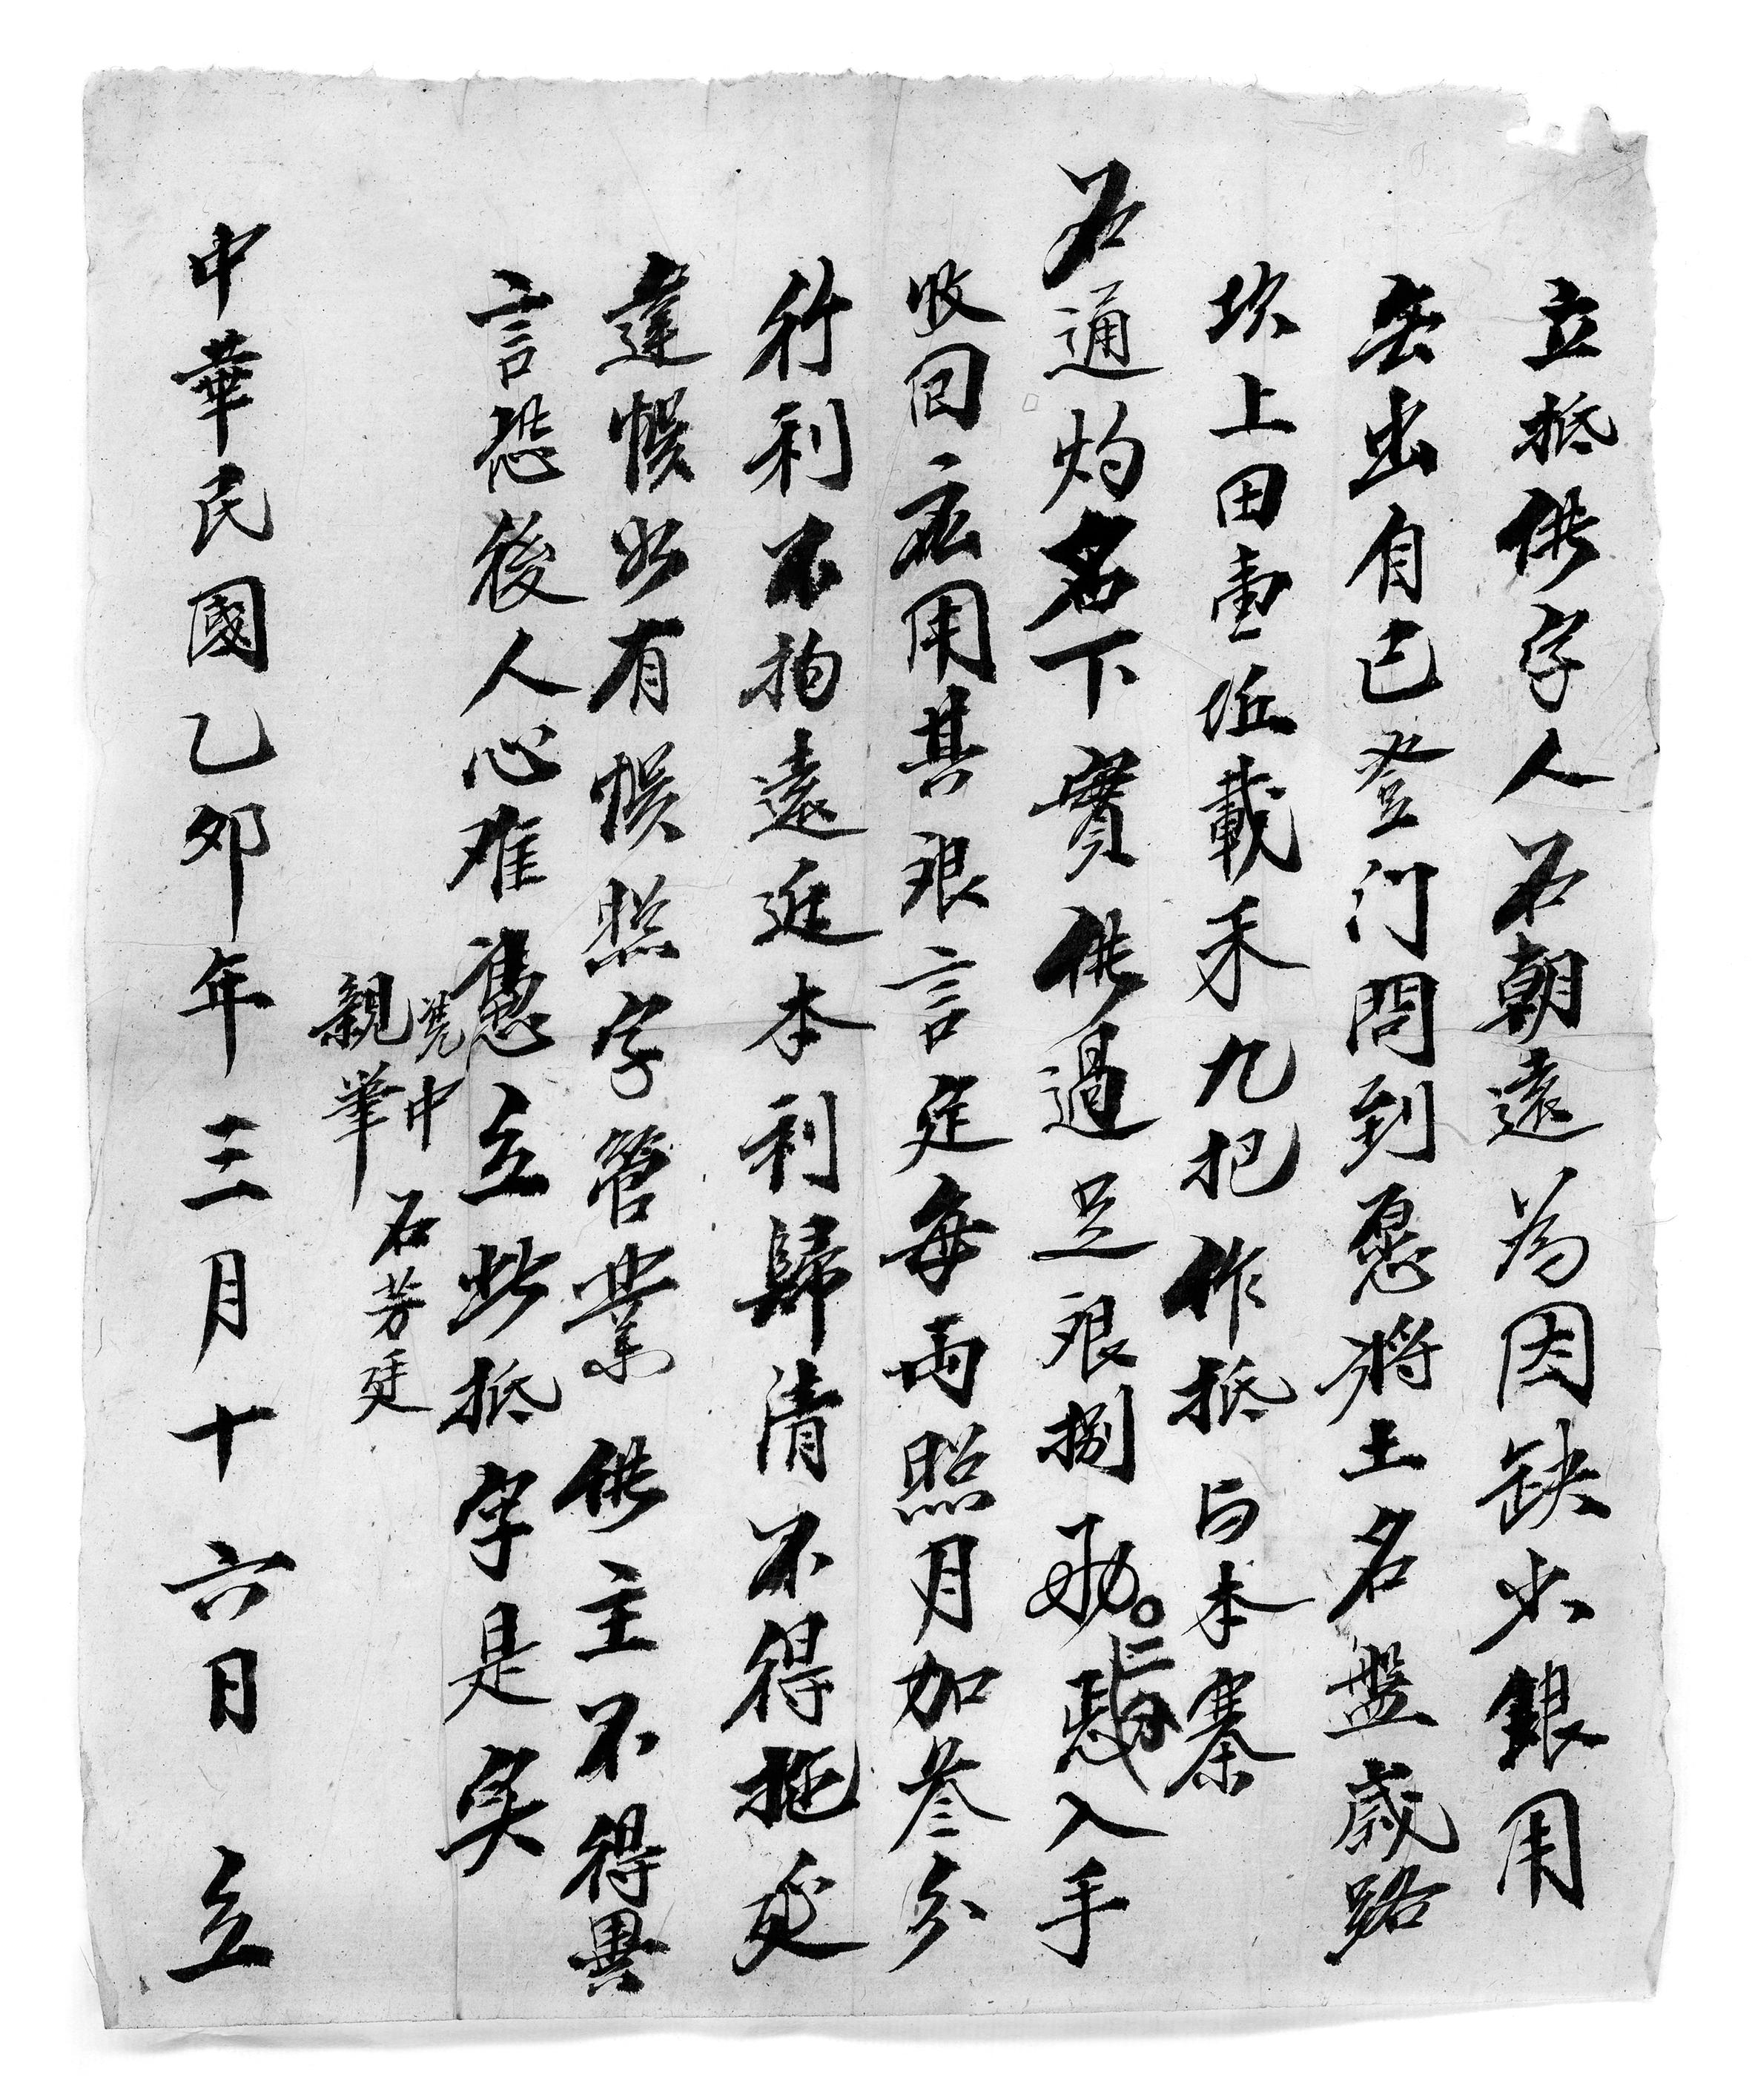 立抵供字人石朝遠為因缺少銀用
無出自己登门問到愿將土名盤歲路
坎上田壹坵載禾九把作抵与本寨
石通灼名下實供過足艮捌両。二分入手
收回應用其艮言定每両照月加叁分
行利不拘遠近本利歸清不得拖延
違悞如有悞照字管業供主不得異
言恐後人心难憑立此抵字是矣
凭中 石芳廷
親筆
中華民國乙夘年三月十六日 立